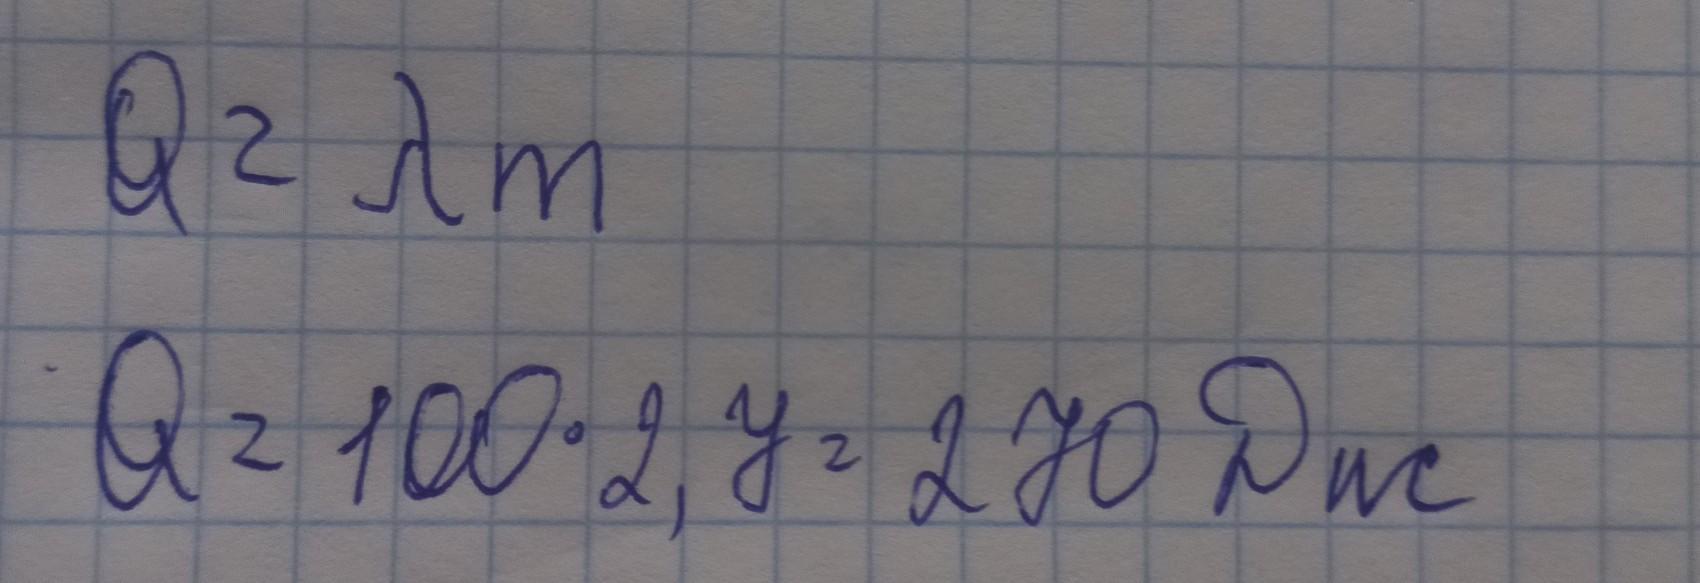 Q = λm
Q = 100 · 2,7 = 270 Дж